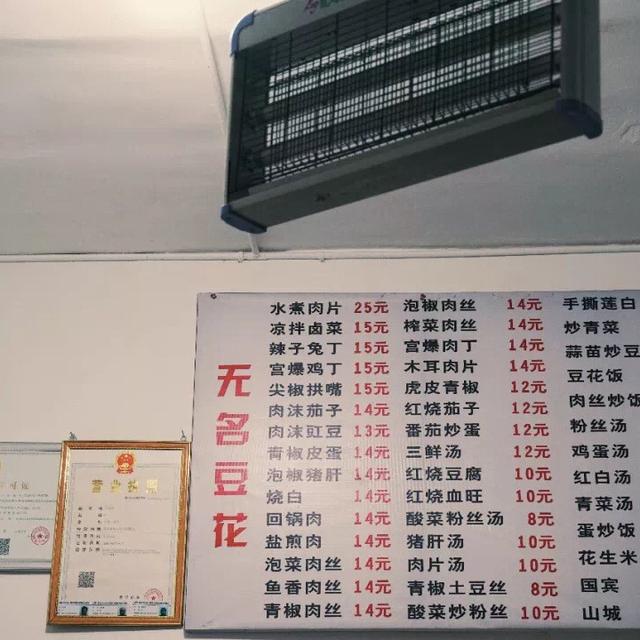 无名豆花
水煮肉片 25元
凉拌卤菜 15元
辣子兔丁 15元
宫爆鸡丁 15元
尖椒拱嘴 15元
肉沫茄子 14元
肉沫豇豆 13元
青椒皮蛋 14元
泡椒猪肝 14元
烧白 14元
回锅肉 14元
盐煎肉 14元
泡菜肉丝 14元
鱼香肉丝 14元
青椒肉丝 14元
泡椒肉丝 14元
榨菜肉丝 14元
宫爆肉丁 14元
木耳肉片 14元
虎皮青椒 12元
红烧茄子 12元
番茄炒蛋 12元
三鲜汤 12元
红烧豆腐 10元
红烧血旺 10元
酸菜粉丝汤 8元
猪肝汤 10元
肉片汤 10元
青椒土豆丝 8元
酸菜炒粉丝 10元
手撕莲白
炒青菜
蒜苗炒豆
豆花饭
肉丝炒饭
粉丝汤
鸡蛋汤
红白汤
青菜汤
蛋炒饭
花生米
国宾
山城
营业执照